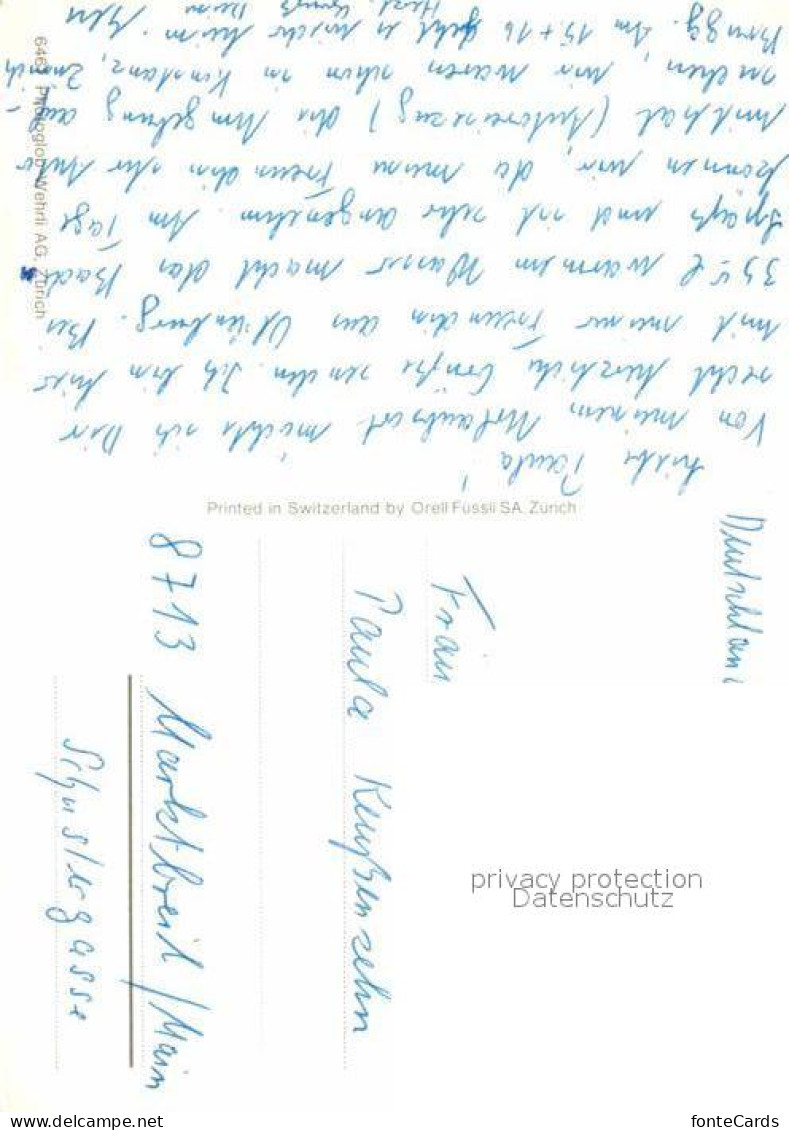 Liebe Paula!
Von meinem Urlaubsort möchte ich Dir
recht herzliche Grüße senden. Ich bin hier
mit meiner Freundin aus Offenburg. Bei
35 warmem Wasser macht das Bad
Spaß und ist sehr angenehm. Am Tage
können wir, da meine Freundin ihr Auto
mithat (Autoreisezug) die Umgebung auf-
suchen, wir waren schon in Konstanz, Zürich
Brugg. Am 15+16 geht es wieder heim.
Herzl. Grüße Deine
6463 Photoglob-Wehrli AG, Zürich
Printed in Switzerland by Orell Füssli SA, Zürich
Frau
Paula Keußenzehn
8713 Marktbreit/Main
Schustergasse
Deutschland
privacy protection
Datenschutz
www.delcampe.net
fonteCards